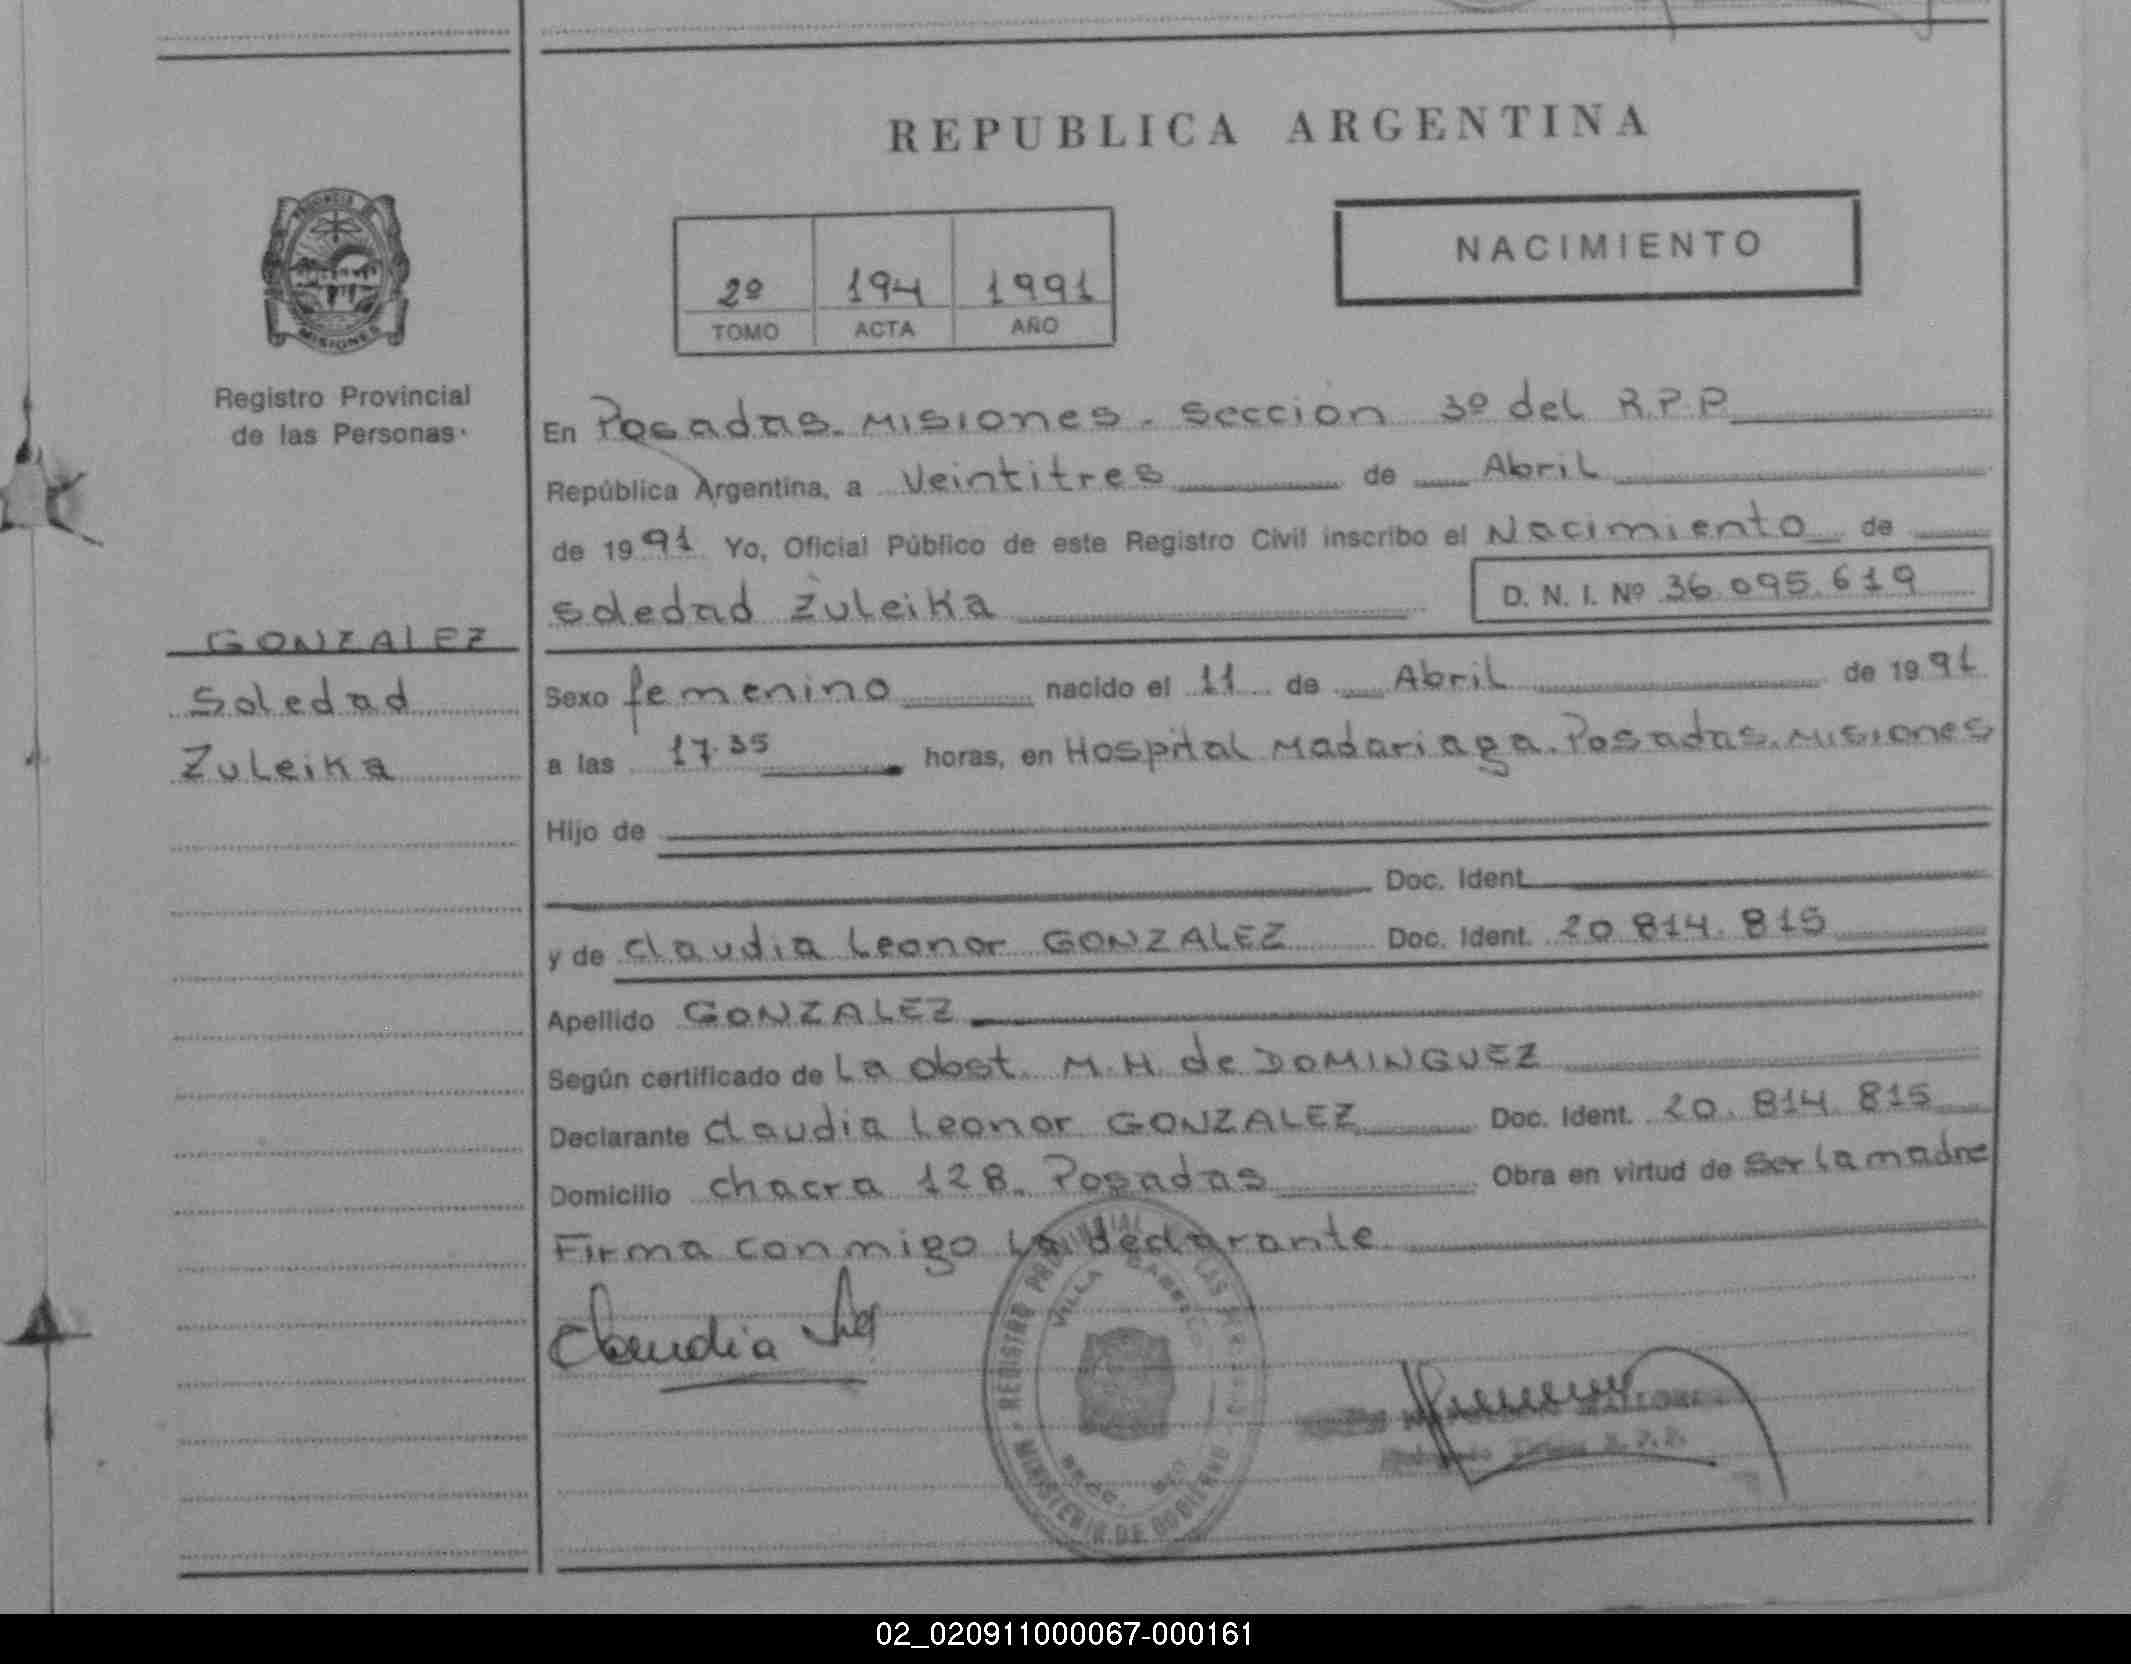 REPUBLICA ARGENTINA
PROVINCIA DE
MISIONES
Registro Provincial
de las Personas.
2º 194 1991
TOMO ACTA AÑO
NACIMIENTO
En Posadas. Misiones. Sección 3º del R.P.P
República Argentina, a Veintitres de Abril
de 1991 Yo, Oficial Público de este Registro Civil inscribo el Nacimiento de
Soledad Zuleika D. N. I. Nº 36.095.619
GONZALEZ
Soledad
Zuleika
Sexo femenino nacido el 11 de Abril de 1991
a las 17.35 horas, en Hospital Madariaga. Posadas. Misiones
Hijo de
Doc. Ident.
y de Claudia Leonor GONZALEZ Doc. Ident. 20 814. 815
Apellido GONZALEZ
Según certificado de La obst. M. H. de DOMINGUEZ
Declarante Claudia Leonor GONZALEZ Doc. Ident. 20. 814. 815
Domicilio chacra 128. Posadas Obra en virtud de ser la madre
Firma conmigo la declarante
Claudia
REGISTRO PROVINCIAL LAS
VILLA
MINISTERIO DE GOBIERNO
02_020911000067-000161